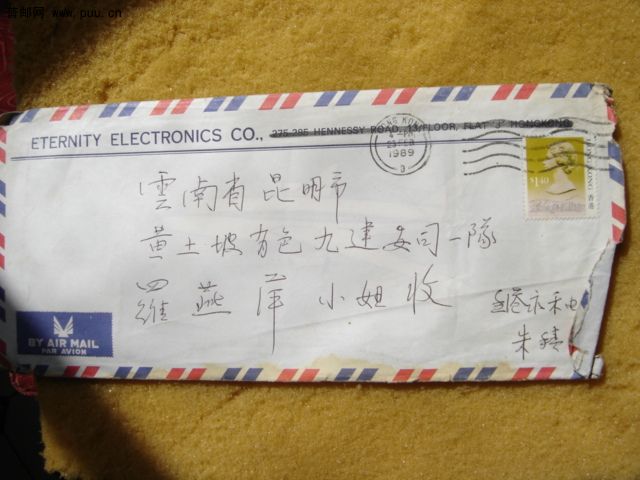 普邮网 www.puu.cn
ETERNITY ELECTRONICS CO., 275-285 HENNESSY ROAD, 13/FLOOR, FLAT HONGKONG
HONG KONG
1989
$1.40
HONG KONG 香港
雲南省昆明市
黄土坡有色九建安司一隊
羅燕萍小姐收
香港永和
朱
BY AIR MAIL
PAR AVION